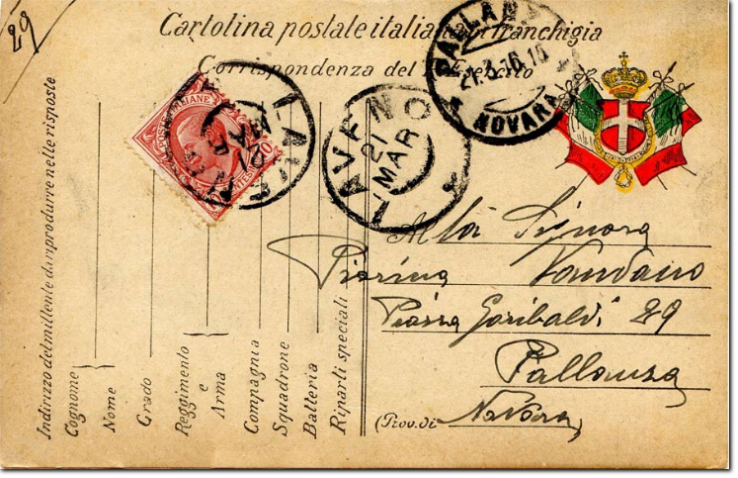 29
Cartolina postale italiana in franchigia
Corrispondenza del R. Esercito
PALLANZA
21.3.16.16
NOVARA
POSTE ITALIANE
10
LAVENO
21
MAR
LAVENO
21
MAR
Alla Signora
Pierina
Piazza Garibaldi 29
Pallanza
(Prov. di Novara
Indirizzo del mittente da riprodurre nelle risposte
Cognome
Nome
Grado
Reggimento
e
Arma
Compagnia
Squadrone
Batteria
Riparti speciali